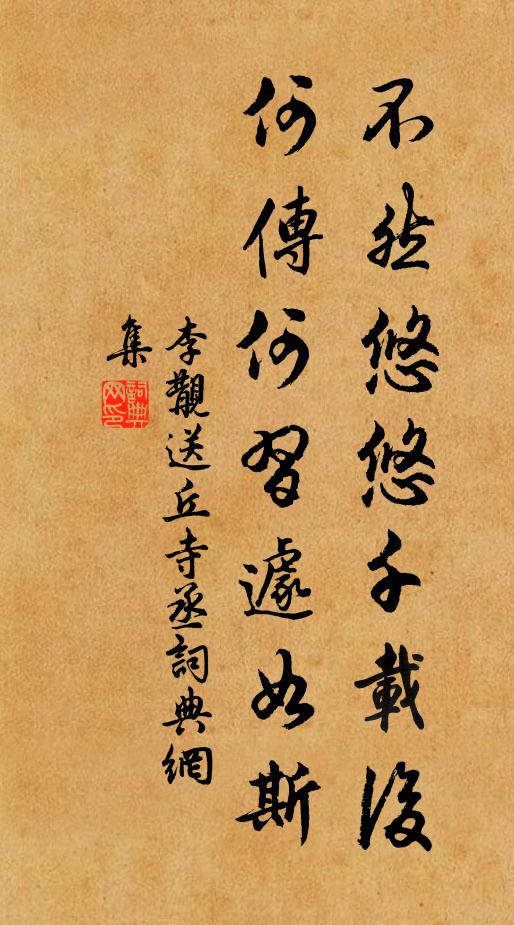 不然悠悠千載後
何傳何習遽如斯
李觀送丘寺丞詞典網
集
詞典
网印